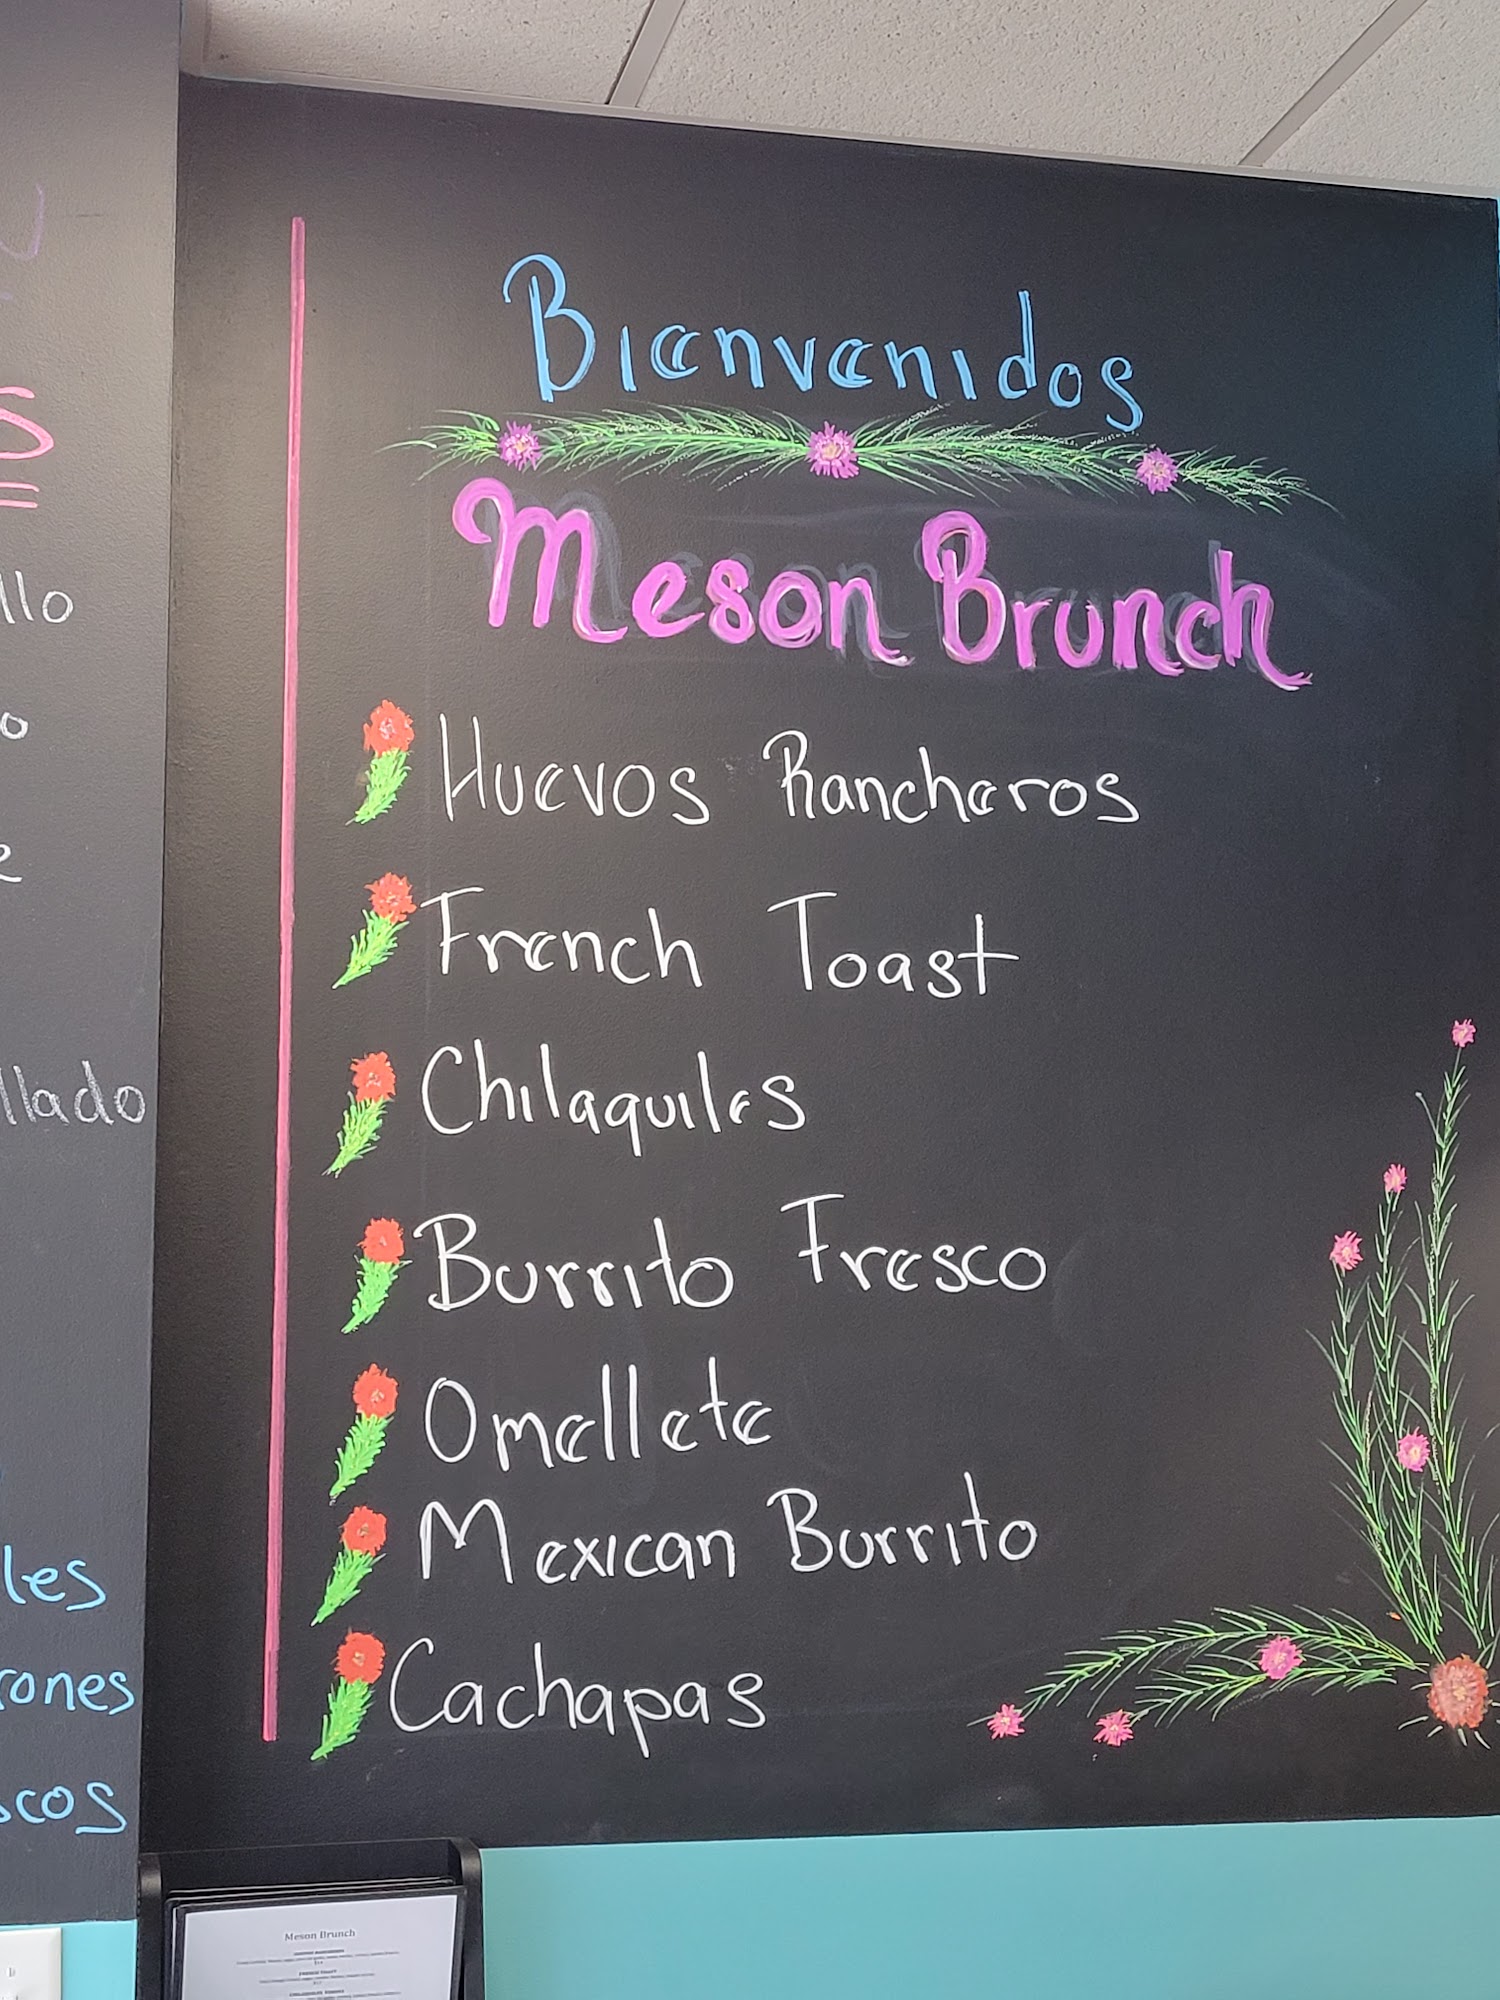 Bienvenidos
Meson Brunch
Huevos Rancheros
French Toast
Chilaquiles
Burrito Fresco
Omellete
Mexican Burrito
Cachapas
Meson Brunch